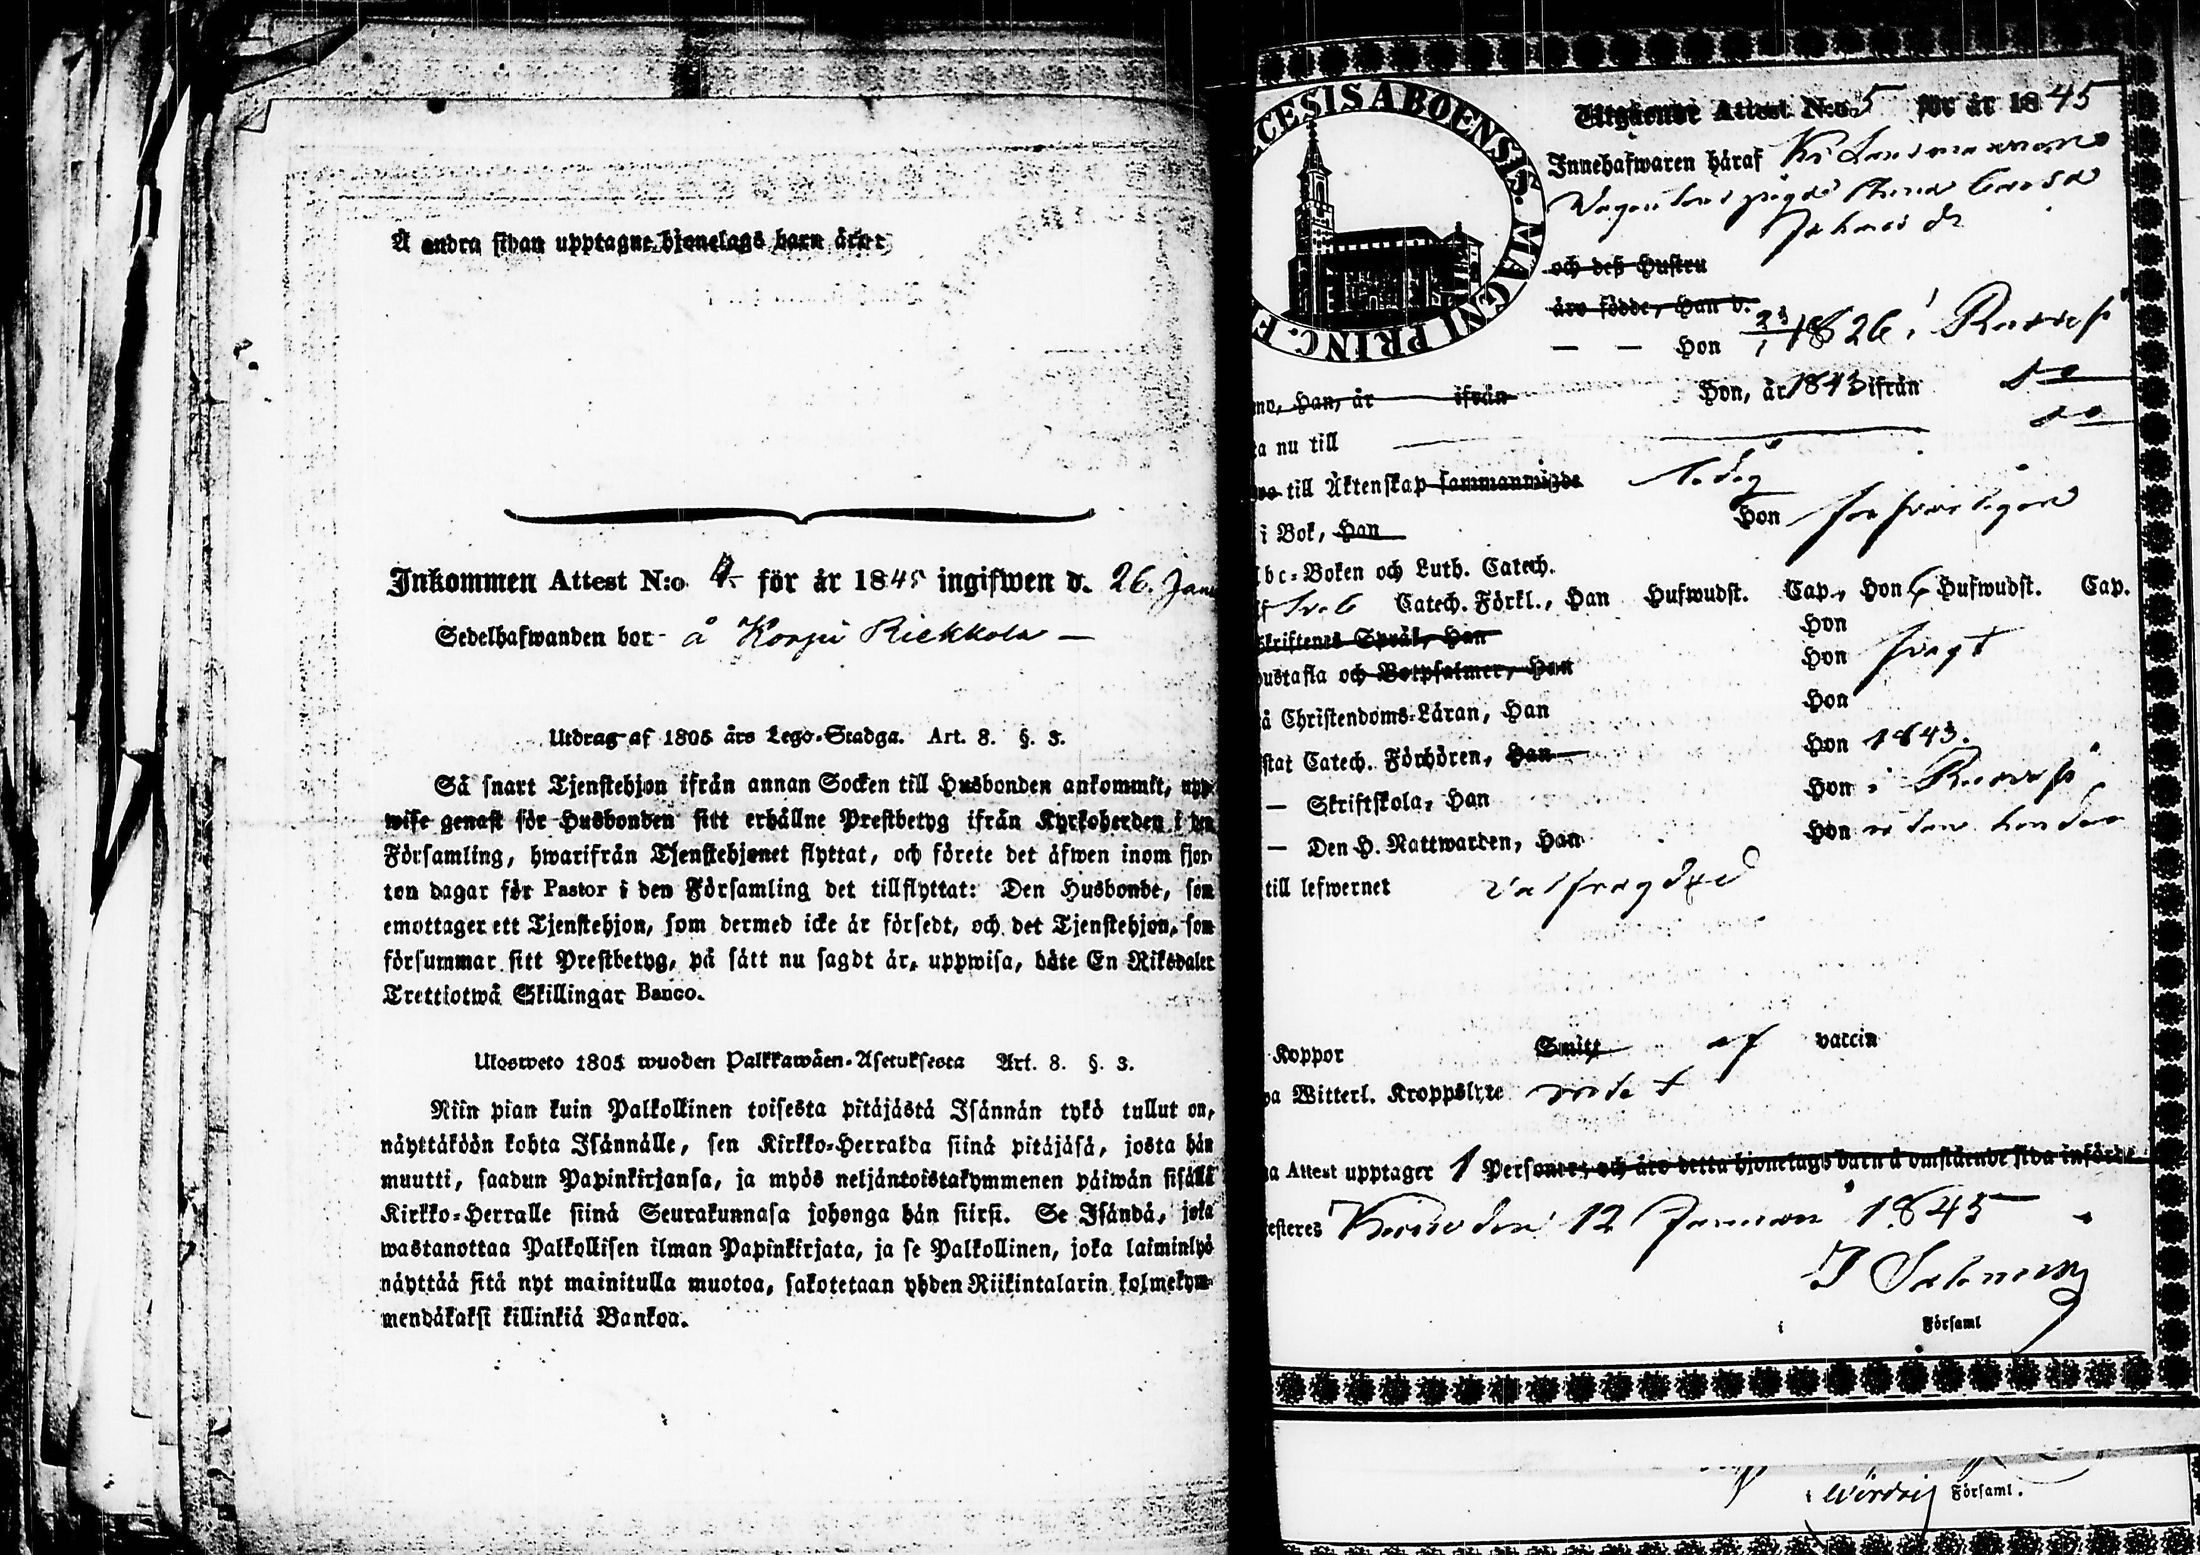 Å andra sidan upptagne hjonelags barn äro:
Inkommen Attest N:o 4. för år 1845 ingifwen d. 26. Janu
Sedelhafwanden bor å Korpi Riekkola —
Utdrag af 1805 års Lego-Stadga. Art. 8. §. 3.
Så snart Tjenstehjon ifrån annan Socken till Husbonden ankommit, upp-
wise genast för Husbonden sitt erhållne Prestbetyg ifrån Kyrkoherden i den
Församling, hwarifrån Tjenstehjonet flyttat, och förete det äfwen inom fjor-
ton dagar för Pastor i den Församling det tillflyttat: Den Husbonde, som
emottager ett Tjenstehjon, som dermed icke är försedt, och det Tjenstehjon, som
försummar sitt Prestbetyg, på sätt nu sagdt är, uppwisa, böte En Riksdaler
Trettiotwå Skillingar Banco.
Ulosweto 1805 wuoden Palkkawäen-Asetuksesta Art. 8. §. 3.
Niin pian kuin Palkollinen toisesta pitäjästä Isännän tykö tullut on,
näyttäköön kohta Isännälle, sen Kirkko-Herralda siinä pitäjäsä, josta hän
muutti, saadun Papinkirjansa, ja myös neljäntoistakymmenen päiwän sisällä
Kirkko-Herralle siinä Seurakunnasa johonga hän siirsi. Se Isändä, joka
wastanottaa Palkollisen ilman Papinkirjata, ja se Palkollinen, joka laiminlyö
näyttää sitä nyt mainitulla muotoa, sakotetaan yhden Riikintalarin kolmekym-
mendäkaksi killinkiä Bankoa.
CESIS ABOENSIS. MAGNI PRINC. F
Utgående Attest N:o 5 för år 1845
Innehafwaren häraf
piga
Johansdr
och deß Hustru
äro födde, Han d.
— — Hon 23/1 1826 i
no, Han, år ifrån Hon, år 1843 ifrån do
a nu till do
wo till Äktenskap sammanwigde ledig
i Bok, Han Hon försvarligen
bc-Boken och Luth. Catech.
Catech. Förkl., Han Hufwudst. Cap., Hon 6 Hufwudst. Cap.
skriftenes Språk, Han Hon
hustafla och Botpsalmer, Han Hon svagt
å Christendoms-Läran, Han Hon
stat Catech. Förhören, Han Hon 1843.
— Skriftskola, Han Hon i
— Den H. Nattwarden, Han Hon
till lefwernet välfrägdad
Koppor Smitt af vaccin
Witterl. Kroppslyte
na Attest upptager 1 Personer, och äro detta hjonelags barn å omstående sida införde.
testeres den 12 Januari 1845
i Församl
i Församl.